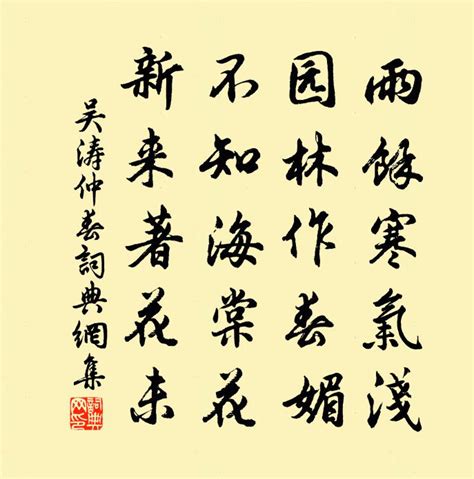 雨餘寒氣淺
园林作春媚
不知海棠花
新来著花未
吴涛仲春詞典網集